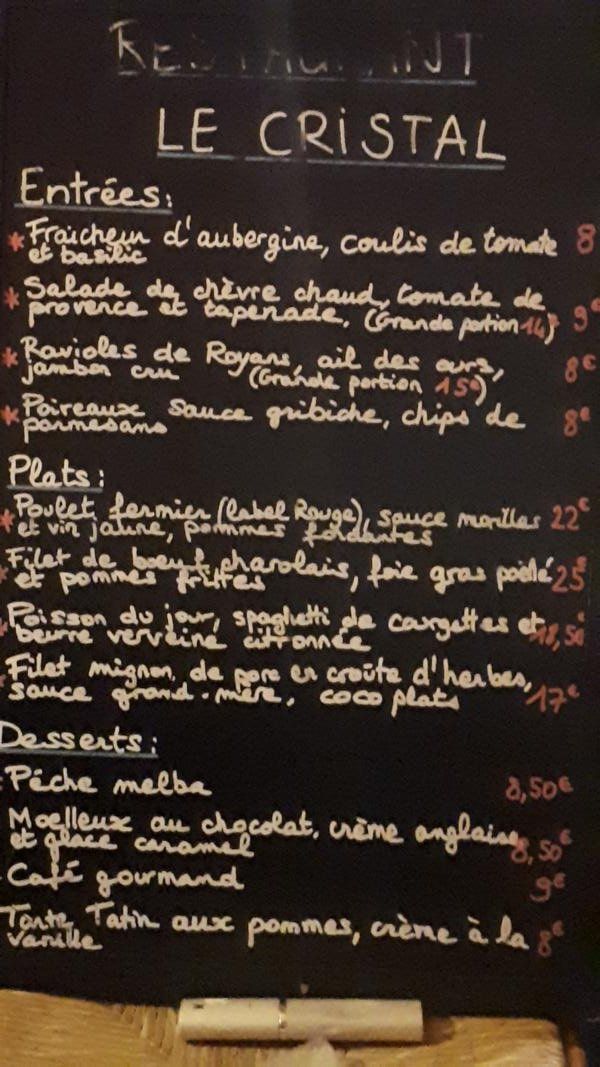 RESTAURANT
LE CRISTAL
Entrées:
* Fraîcheur d'aubergine, coulis de tomate 8
et basilic
* Salade de chèvre chaud, tomate de
provence et tapenade. (Grande portion 14) 9€
* Ravioles de Royans, ail des ours, 8€
jambon cru (Grande portion 15€)
* Poireaux sauce gribiche, chips de 8€
parmesans
Plats:
* Poulet fermier (label Rouge), sauce morilles 22€
et vin jaune, pommes fondantes
* Filet de boeuf charolais, foie gras poêlé 25€
et pommes frites
* Poisson du jour, spaghetti de courgettes et 18,50€
beurre verveine citronnée
* Filet mignon de porc en croûte d'herbes,
sauce grand-mère, coco plats 17€
Desserts:
Pêche melba 8,50€
Moelleux au chocolat, crème anglaise 8,50€
et glace caramel
Café gourmand 9€
Tarte Tatin aux pommes, crème à la 8€
vanille